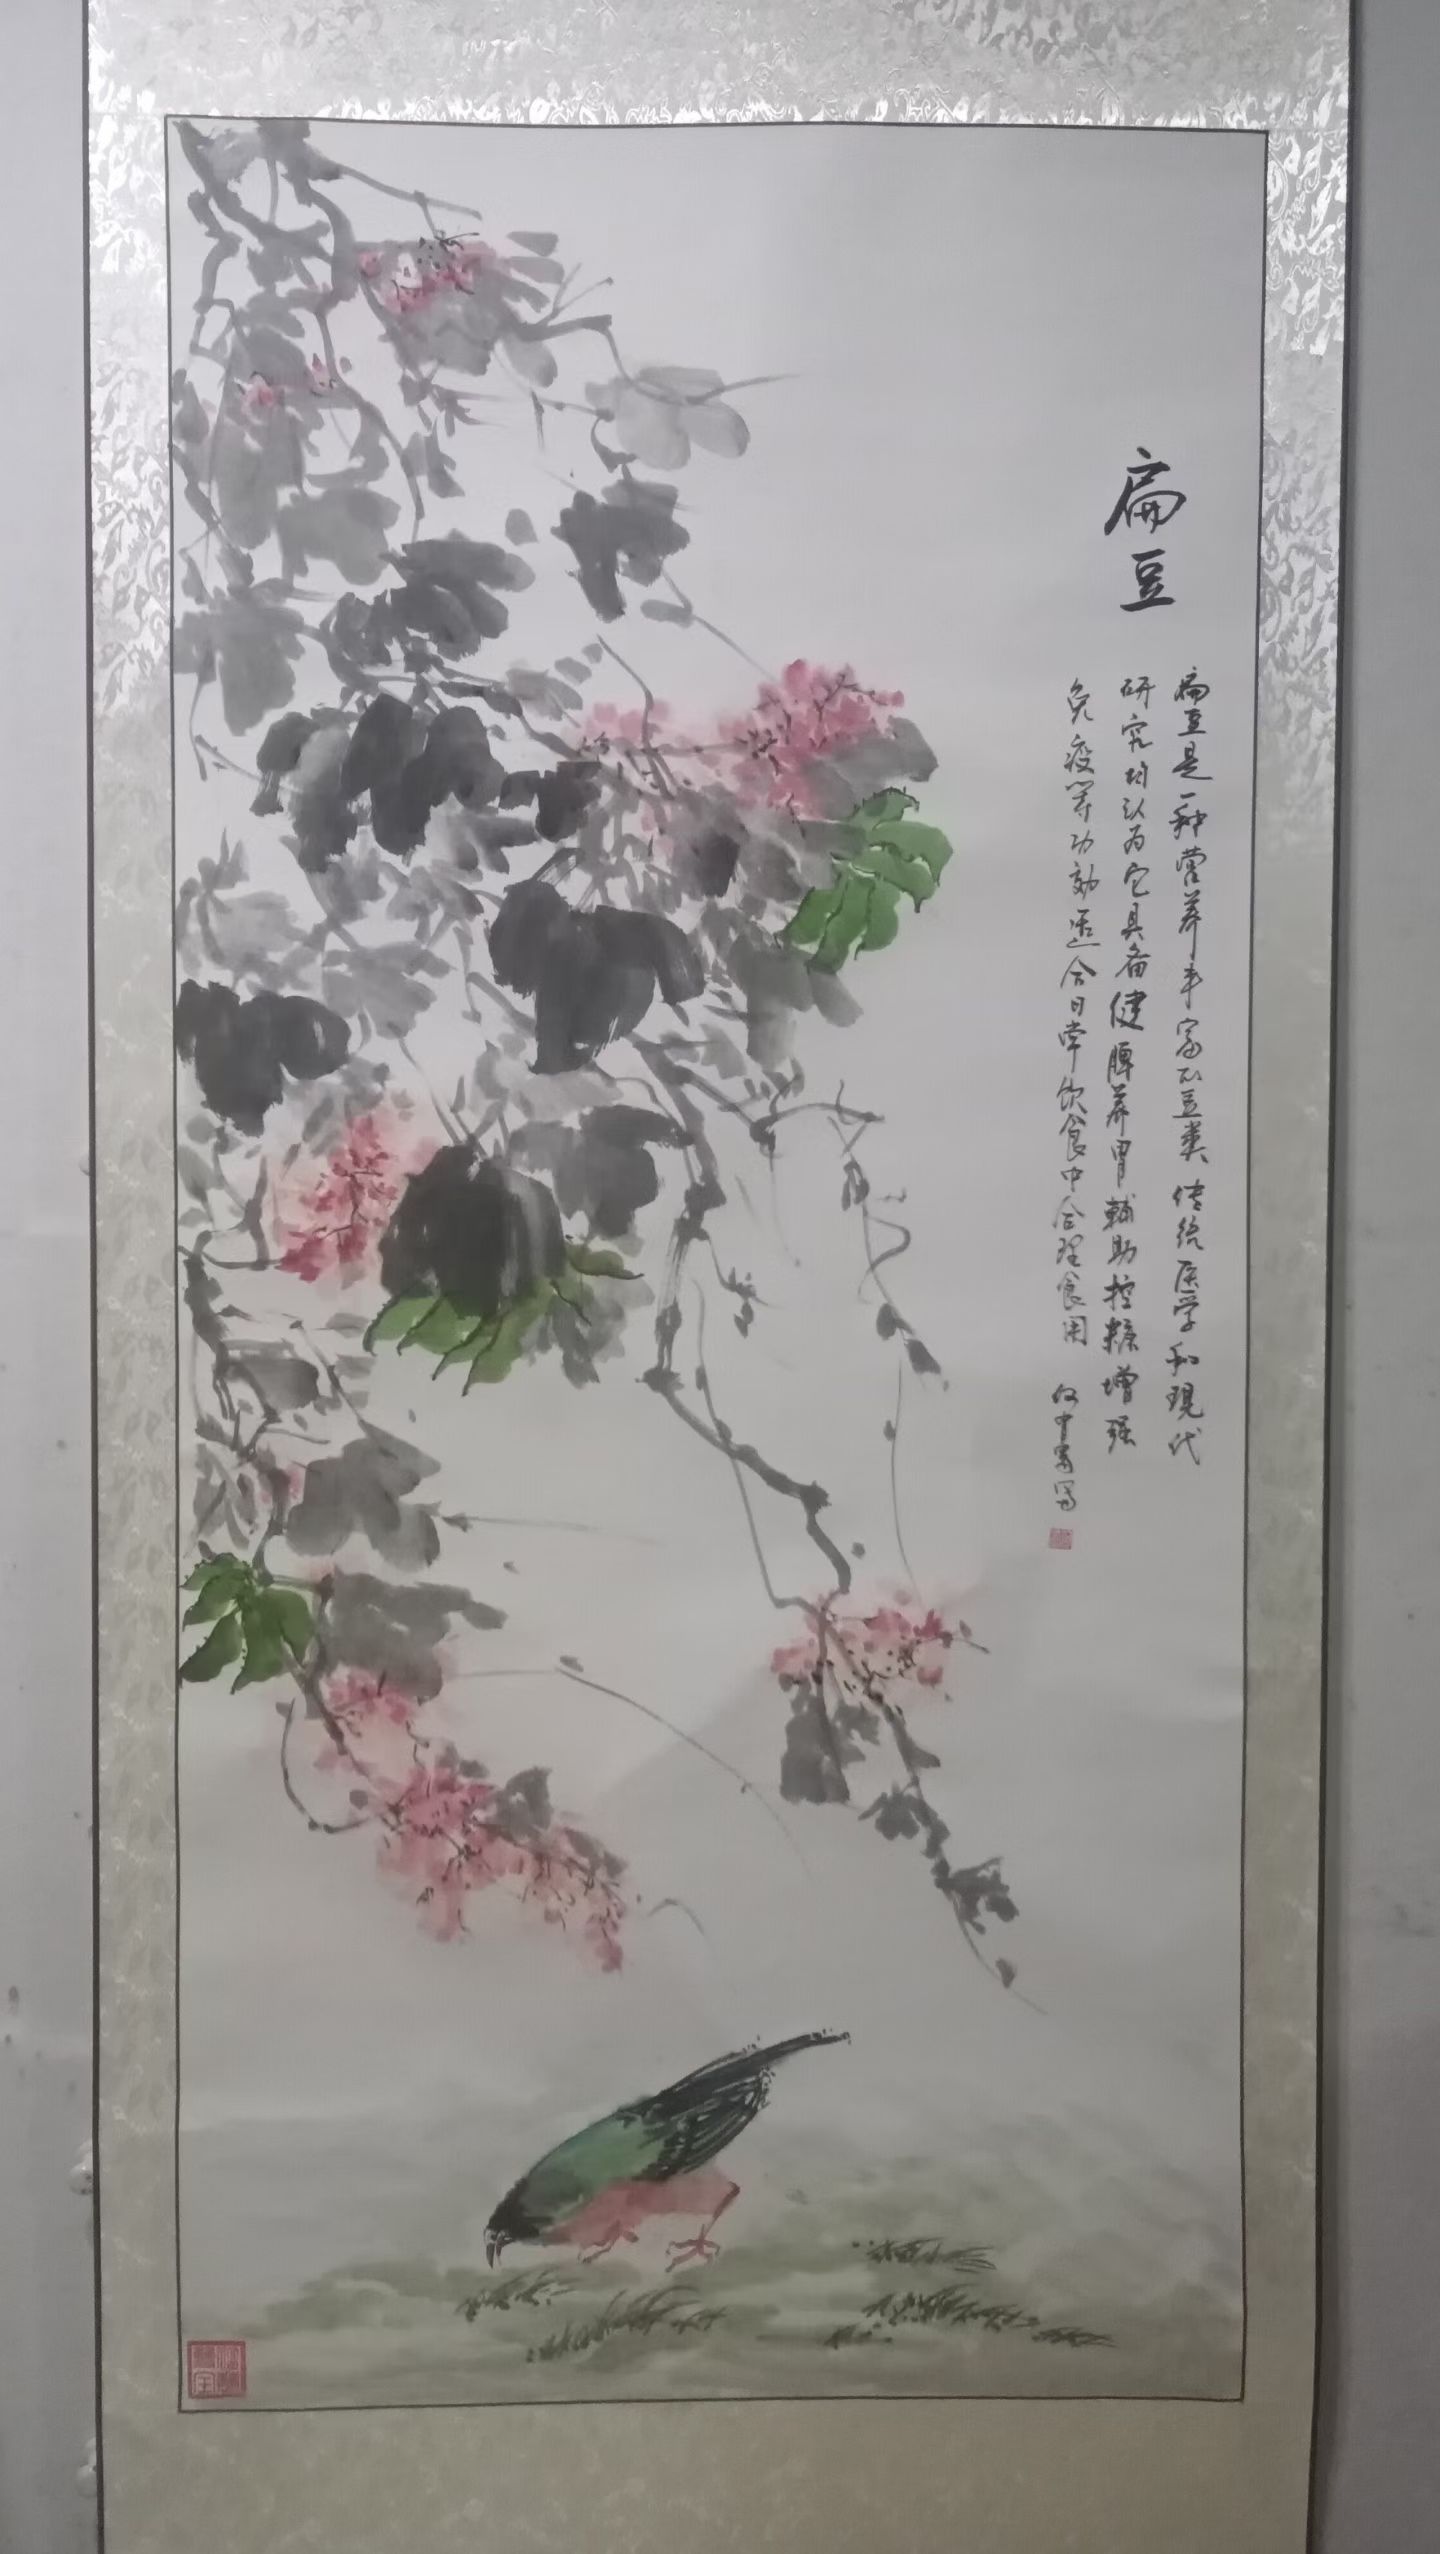 扁豆
扁豆是一种营养丰富的豆类 传统医学和现代
研究均认为它具备健脾养胃輔助控糖增强
免疫等功效 适合日常饮食中合理食用